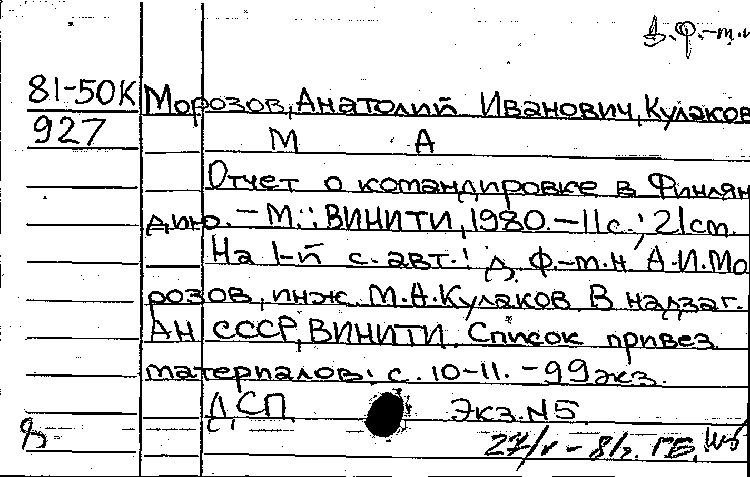 д.ф.-м.н
81-50К Морозов, Анатолий Иванович, Кулаков
927 М А
Отчет о командировке в Финлян
дию. - М.: ВИНИТИ, 1980. - 11 с.; 21 см.
На 1-й с. авт.: д.ф.-м.н. А.И.Мо
розов, инж. М.А.Кулаков. В надзаг.
АН СССР, ВИНИТИ. Список привез
материалов: с. 10-11. - 99 экз.
ДСП Экз.N5
27/V - 81г. ГБ,